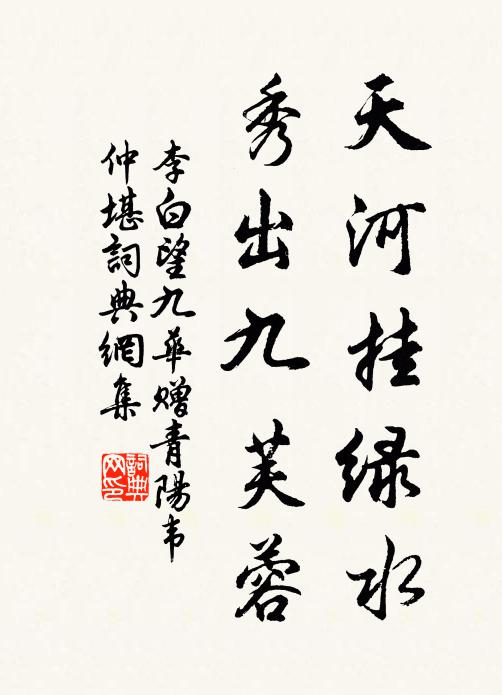 天河挂绿水
秀出九芙蓉
李白望九华赠青陽韦
仲堪詞典網集
詞典网印